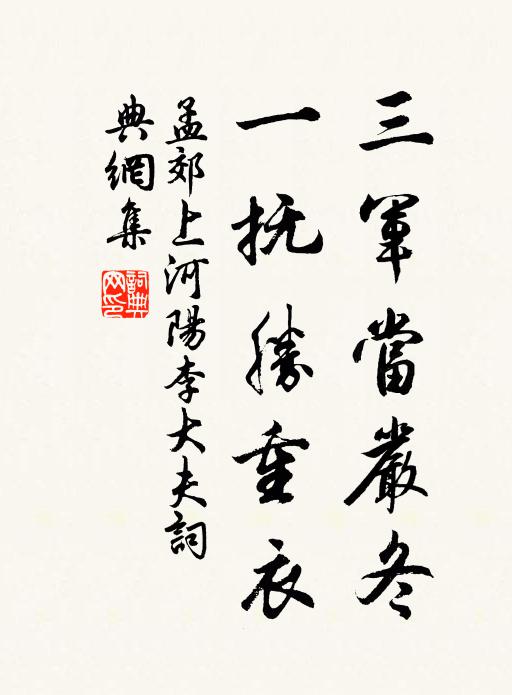 三軍當嚴冬
一抚勝重衣
孟郊上河陽李大夫詞
典網集
詞典网印